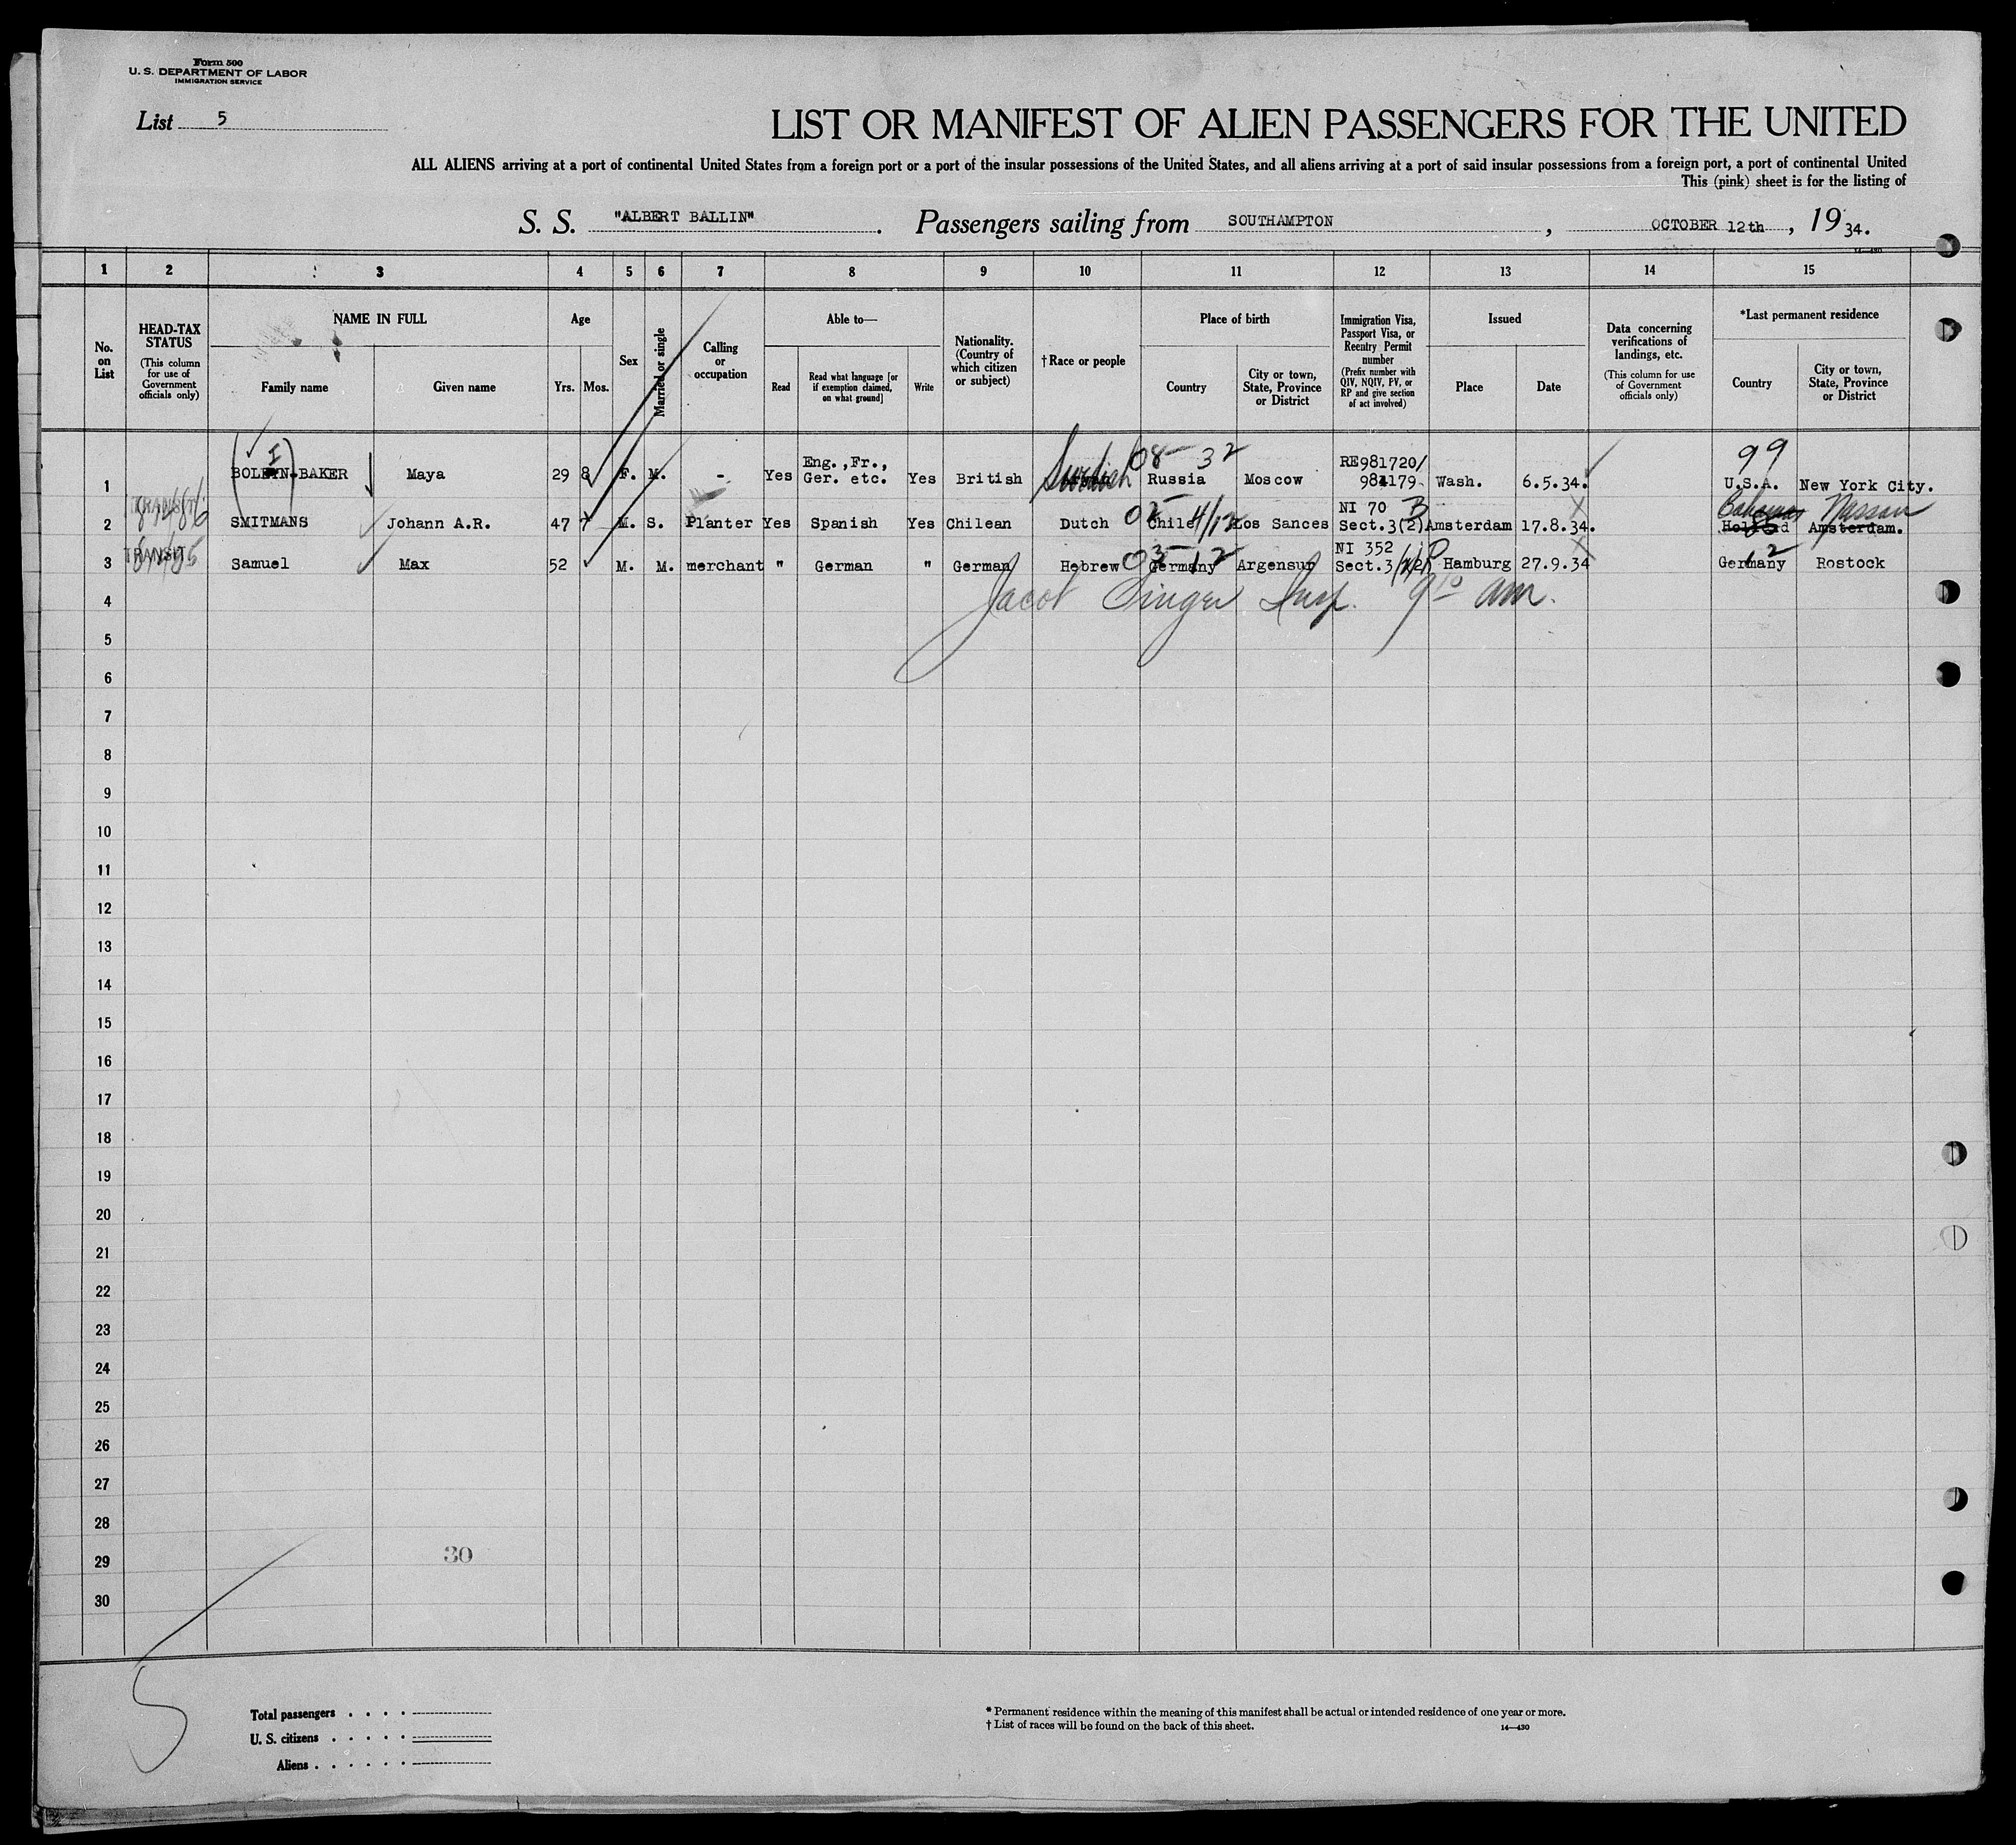 Form 500
U. S. DEPARTMENT OF LABOR
IMMIGRATION SERVICE
List 5
LIST OR MANIFEST OF ALIEN PASSENGERS FOR THE UNITED
ALL ALIENS arriving at a port of continental United States from a foreign port or a port of the insular possessions of the United States, and all aliens arriving at a port of said insular possessions from a foreign port, a port of continental United
This (pink) sheet is for the listing of
S. S. "ALBERT BALLIN". Passengers sailing from SOUTHAMPTON, OCTOBER 12th, 1934.
14—430
1 2 3 4 5 6 7 8 9 10 11 12 13 14 15
No. on List
HEAD-TAX STATUS
(This column for use of Government officials only)
NAME IN FULL
Family name Given name
Age
Yrs. Mos.
Sex
Married or single
Calling or occupation
Able to—
Read
Read what language [or if exemption claimed, on what ground]
Write
Nationality. (Country of which citizen or subject)
† Race or people
Place of birth
Country
City or town, State, Province or District
Immigration Visa, Passport Visa, or Reentry Permit number
(Prefix number with QIV, NQIV, PV, or RP and give section of act involved)
Issued
Place Date
Data concerning verifications of landings, etc.
(This column for use of Government officials only)
*Last permanent residence
Country
City or town, State, Province or District
1 BOLEYN-BAKER I Maya 29 8 F. M. - Yes Eng.,Fr., Ger. etc. Yes British Swedish 08 32 Russia Moscow RE981720/ 984179 Wash. 6.5.34. 99 U.S.A. New York City.
2 TRANSIT SMITMANS Johann A.R. 47 M. S. Planter Yes Spanish Yes Chilean Dutch 02 Chile 4/12 Los Sances NI 70 B Sect.3(2) Amsterdam 17.8.34. Bahamas Nassau Holland Amsterdam.
3 TRANSIT Samuel Max 52 M. M. merchant " German " German Hebrew 03 Germany 12 Argensur NI 352 Sect.3 Hamburg 27.9.34 Germany 12 Rostock
4 Jacob Singer Insp. 9 10 am.
5
6
7
8
9
10
11
12
13
14
15
16
17
18
19
20
21
22
23
24
25
26
27
28
29 30
30
5
Total passengers . . . .
U. S. citizens . . . . .
Aliens . . . . . .
* Permanent residence within the meaning of this manifest shall be actual or intended residence of one year or more.
† List of races will be found on the back of this sheet.
14—430